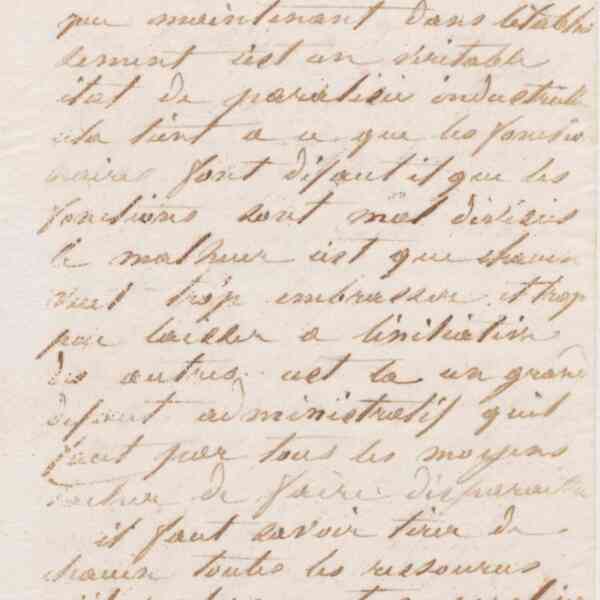 que maintenant dans létablis
sement cest un véritable
état de paralisie industrielle
cela tient a ce que les fonctio
naires font défaut et que les
fonctions sont mal divisées
le malheur est que chacun
veut trop embrasser et trop
peu laisser a linitiative
des autres cest la un grand
défaut administratif quil
faut par tous les moyens
tacher de faire disparaitre
il faut savoir tirer de
chacun toutes les ressources